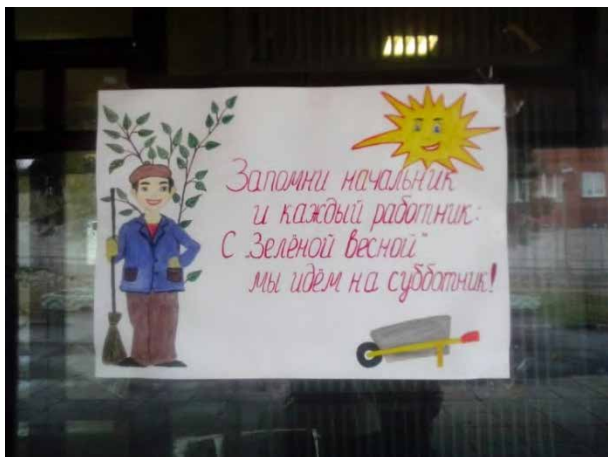 Запомни начальник
и каждый работник:
С „Зелёной Весной"
мы идём на субботник!